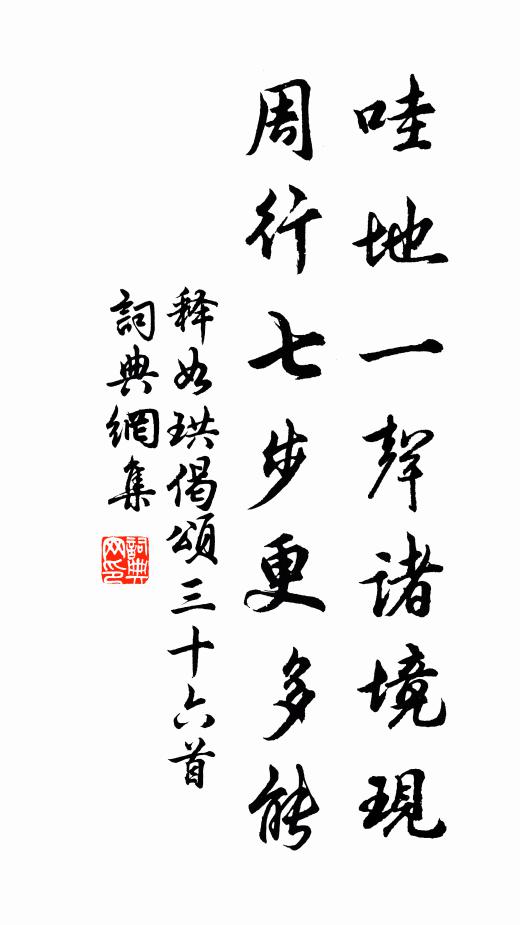 哇地一聲諸境現
周行七步更多能
释如珙偈頌三十六首
詞典網集
詞典
网印